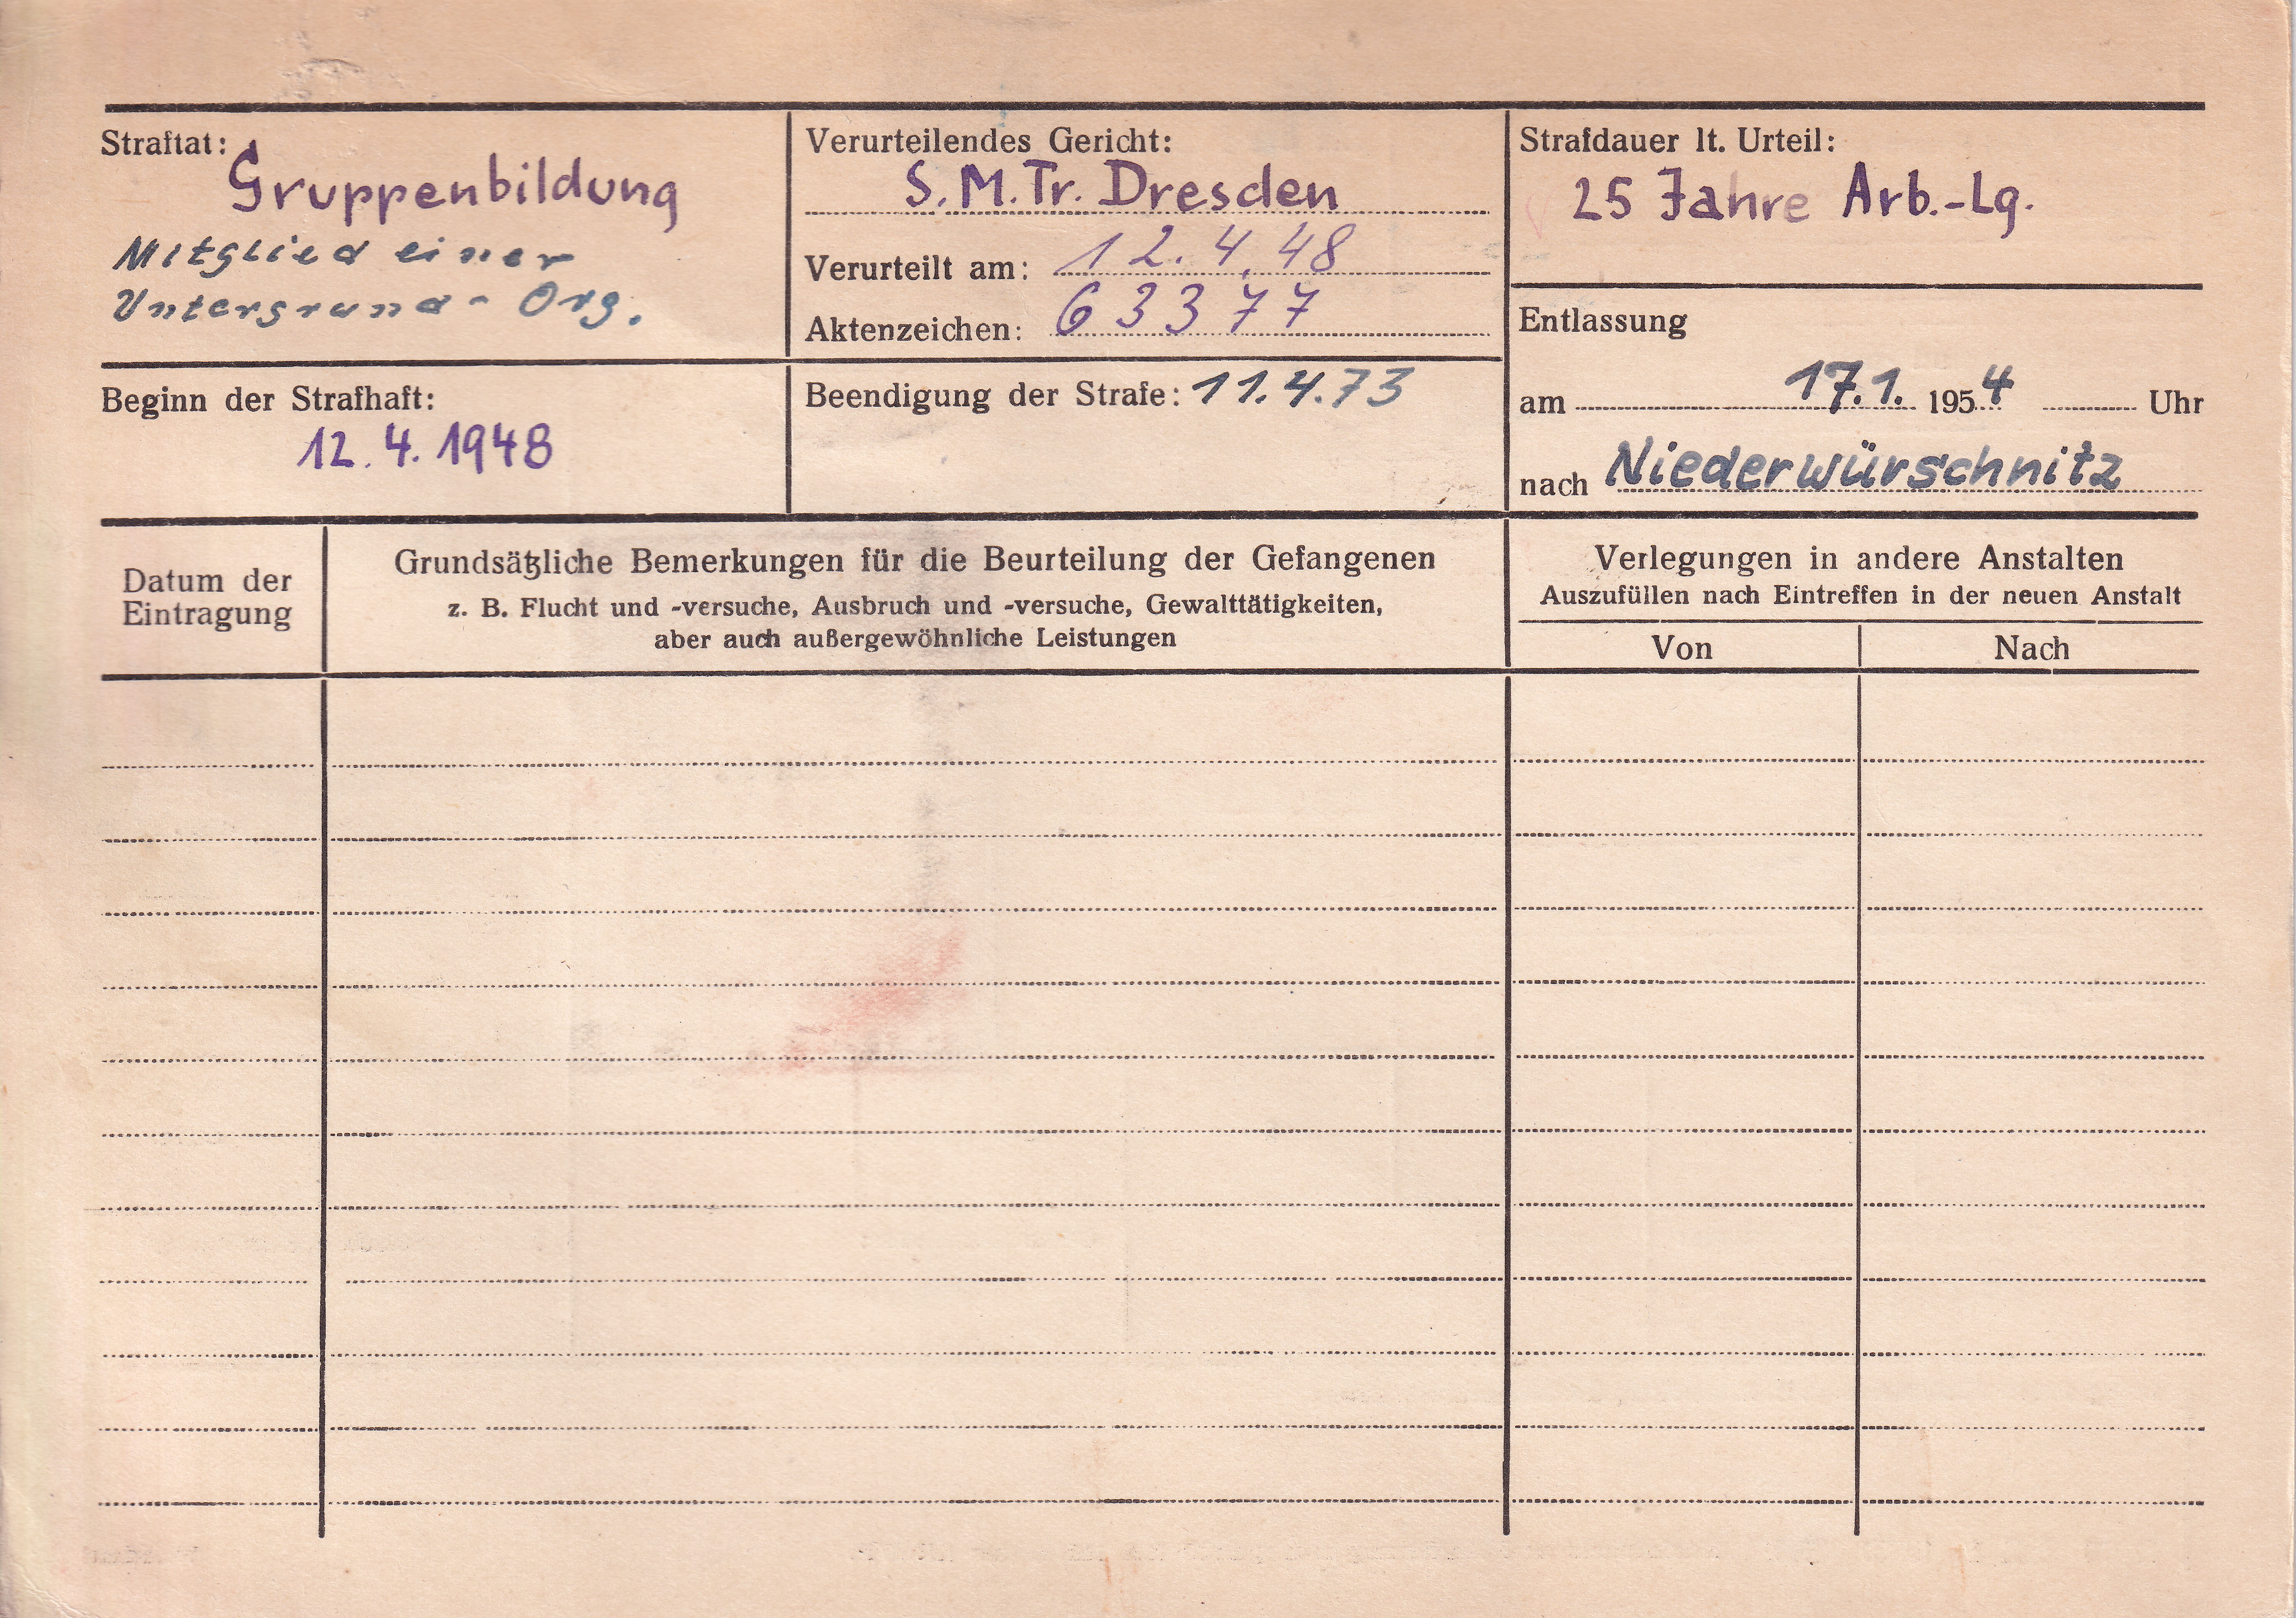 Straftat:
Gruppenbildung
Mitglied einer
Untergrund- Org.
Verurteilendes Gericht:
S.M.Tr. Dresden
Verurteilt am: 12.4.48
Aktenzeichen: 63377
Strafdauer lt. Urteil:
25 Jahre Arb.-Lg.
Entlassung
am 17.1. 1954 Uhr
nach Niederwürschnitz
Beginn der Strafhaft:
12.4.1948
Beendigung der Strafe: 11.4.73
Datum der
Eintragung
Grundsätzliche Bemerkungen für die Beurteilung der Gefangenen
z. B. Flucht und -versuche, Ausbruch und -versuche, Gewalttätigkeiten,
aber auch außergewöhnliche Leistungen
Verlegungen in andere Anstalten
Auszufüllen nach Eintreffen in der neuen Anstalt
Von
Nach